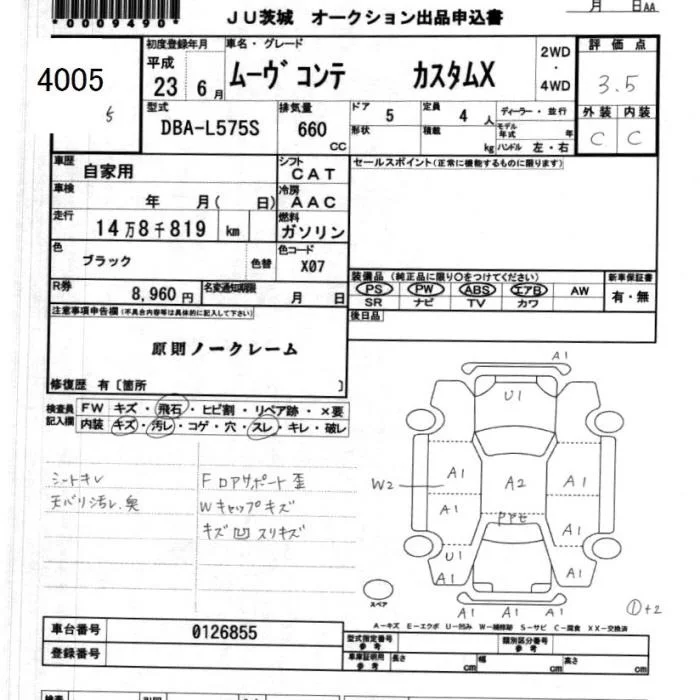 *0009490*
月 日AA
JU茨城 オークション出品申込書
4005
5
初度登録年月
平成
23 6月
車名・グレード
ムーヴコンテ カスタムX
2WD
・
4WD
評価点
3.5
外装 内装
C C
型式
DBA-L575S
排気量
660
CC
ドア 5
形状
定員 4 人
積載 kg
ディーラー・並行
モデル年式 年
ハンドル 左・右
車歴
自家用
シフト
CAT
セールスポイント(正常に機能するものに限ります)
車検
年 月( 日)
冷房
AAC
走行
14万8千819 km
燃料
ガソリン
色
ブラック
色替
色コード
X07
R券
8,960円
名変通知期限
月 日
装備品 (純正品に限り○をつけてください)
PS PW ABS エアB AW
SR ナビ TV カワ
新車保証書
有・無
後日品
注意事項申告欄(不具合内容等は具体的に記入して下さい)
原則ノークレーム
修復歴 有〔箇所 〕
検査員記入欄
FW キズ・飛石・ヒビ割・リペア跡・×要
内装 キズ・汚レ・コゲ・穴・スレ・キレ・破レ
シートキレ
天バリ汚レ.臭
FロアサポートE歪
Wキャップキズ
キズ凹スリキズ
A1
U1
A1 A2 A1
W2
A1
PPモ
A1
U1
A1 A1
A1 A1 A1
スペア
①+2
A−キズ E−エクボ U−凹み W−補修跡 S−サビ C−腐食 XX−交換済
車台番号 0126855
登録番号
型式指定番号
参考
類別区分番号
参考
車庫証明用
参考
長さ cm
幅 cm
高さ cm